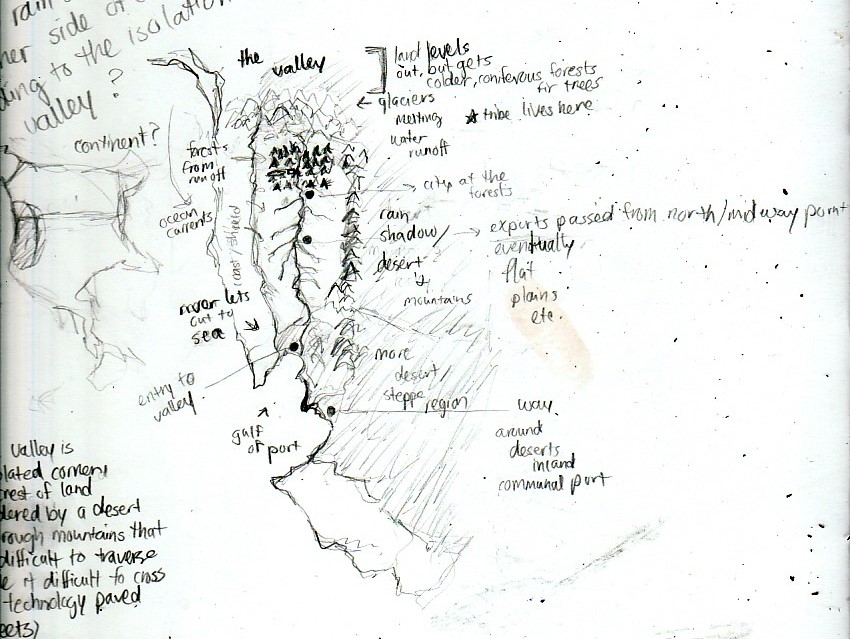 rain
her side of
ding to the isolation
valley?
continent?
the valley
land levels
out, but gets
colder, coniferous forests
fir trees
← glaciers
melting
water
runoff
★ tribe lives here
forests
from
runoff
ocean
currents
coast shield
→ city at the
forests
rain
shadow/
desert
↳
mountains
→ exports passed from north/midway point
eventually
flat
plains
etc.
river lets
out to
sea
entry to
valley
gulf
of port
more
desert/
steppe region
way
around
deserts
inland
communal port
valley is
olated corner,
rest of land
dered by a desert
rough mountains that
difficult to traverse
e it difficult to cross
technology paved
eets)